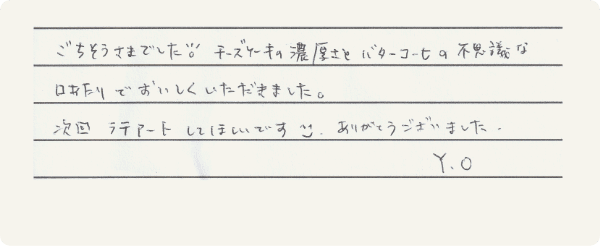 ごちそうさまでした チーズケーキの濃厚さと バターコーヒーの 不思議な
口あたり でおいしくいただきました。
次回 ラテアート してほしいです . ありがとうございました.
Y.O